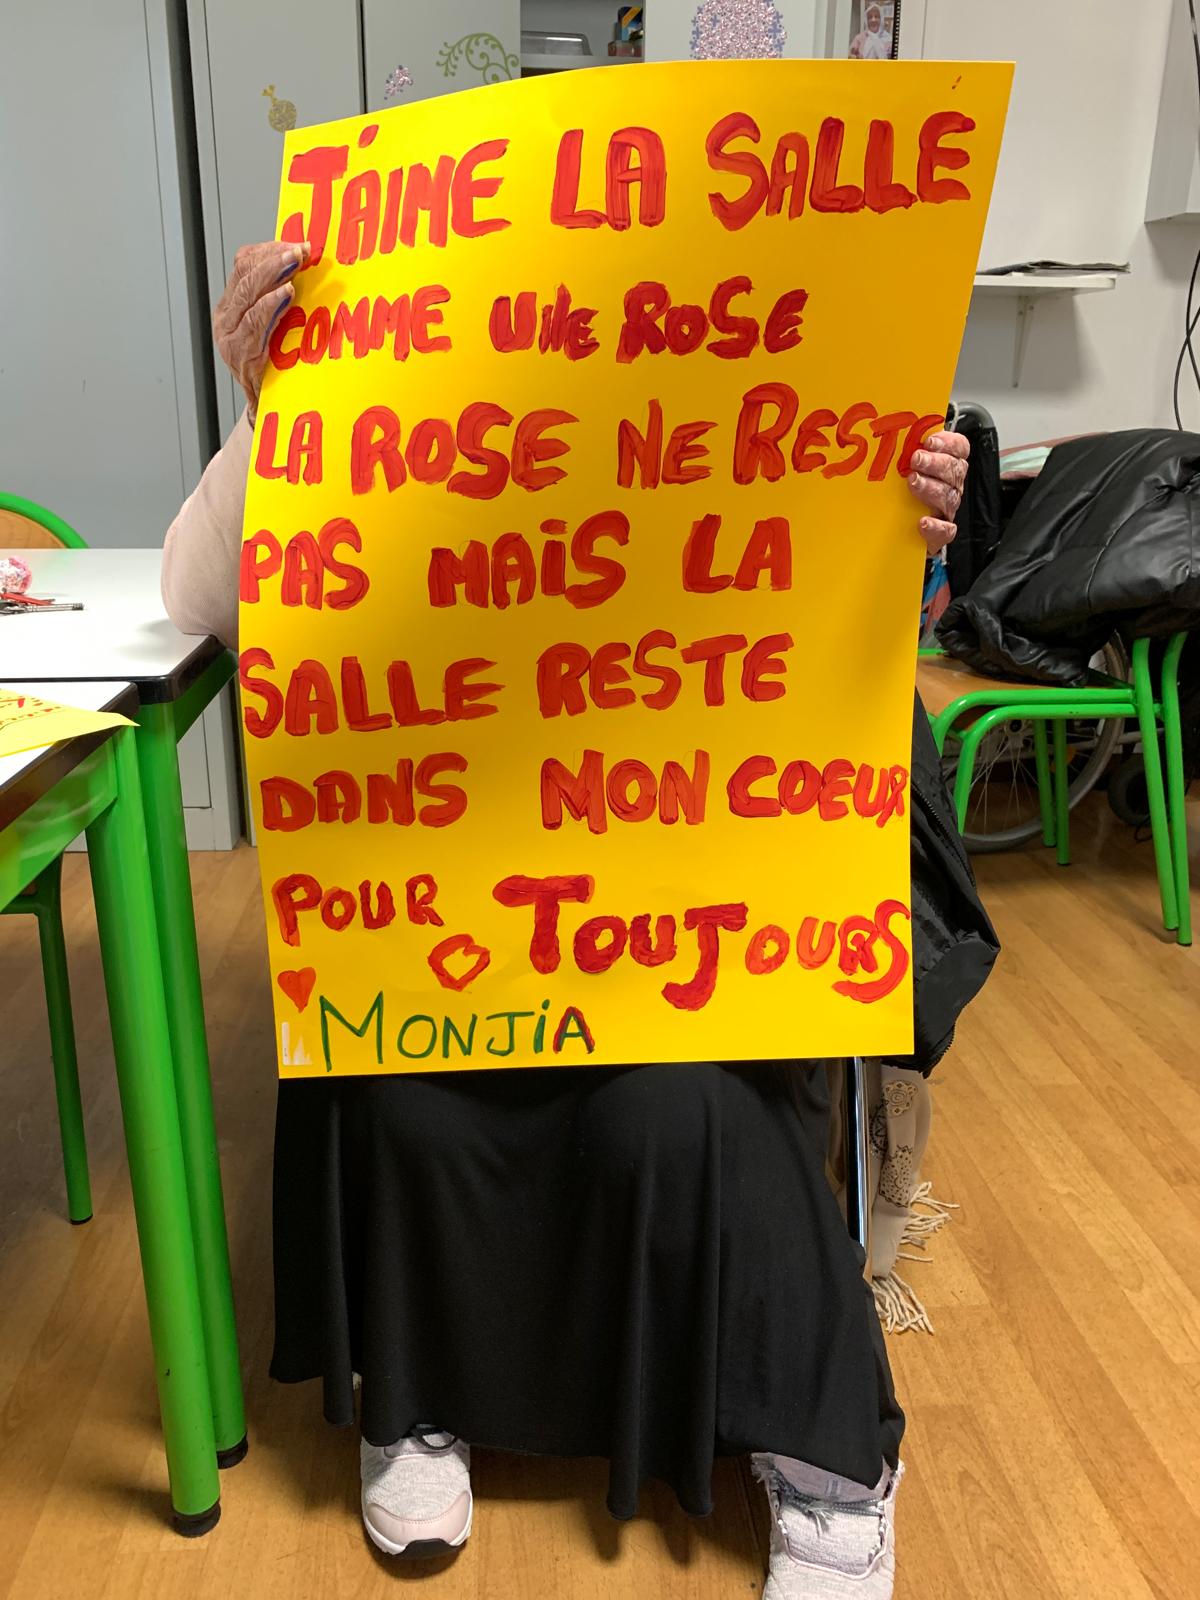 J'AIME LA SALLE
COMME UNE ROSE
LA ROSE NE RESTE
PAS MAIS LA
SALLE RESTE
DANS MON COEUR
POUR TOUJOURS
MONJIA